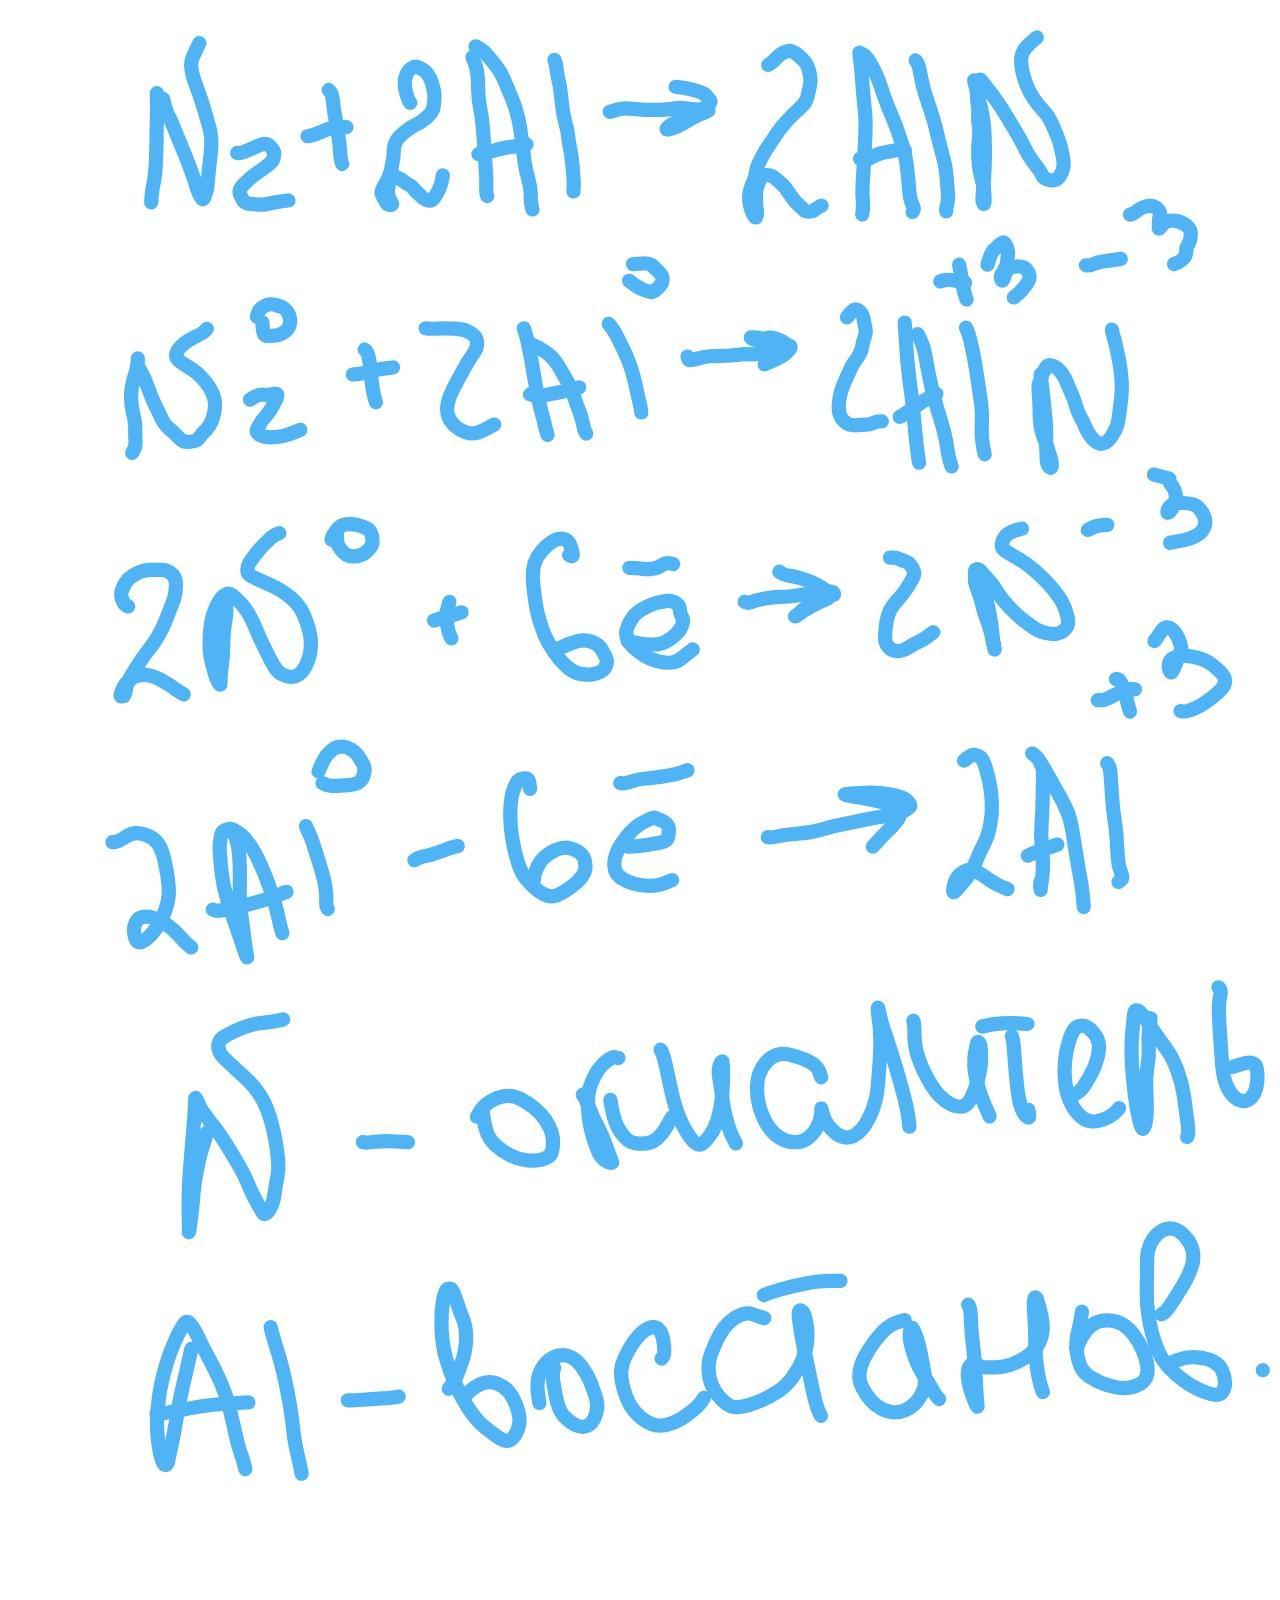 N₂ + 2Al → 2AlN
N₂⁰ + 2Al⁰ → 2Al⁺³N⁻³
2N⁰ + 6ē → 2N⁻³
2Al⁰ - 6ē → 2Al⁺³
N - окислитель
Al - восстанов.